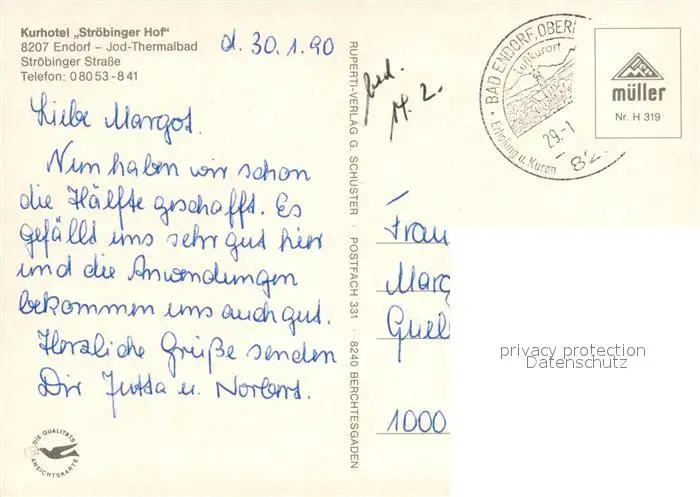 Kurhotel „Ströbinger Hof"
8207 Endorf – Jod-Thermalbad
Ströbinger Straße
Telefon: 0 80 53 - 8 41
d. 30.1.90
Liebe Margot.
Nun haben wir schon
die Hälfte geschafft. Es
gefällt uns sehr gut hier
und die Anwendungen
bekommen uns auch gut.
Herzliche Grüße senden
Dir Jutta u. Norbert.
DIE QUALITÄTS
ANSICHTSKARTE
RUPERTI-VERLAG G. SCHUSTER · POSTFACH 331 · 8240 BERCHTESGADEN
BAD ENDORF, OBERB
Luftkurort
Erholung u. Kuren
29.-1
82
müller
Nr. H 319
Frau
Marg
Quell
1000
privacy protection
Datenschutz